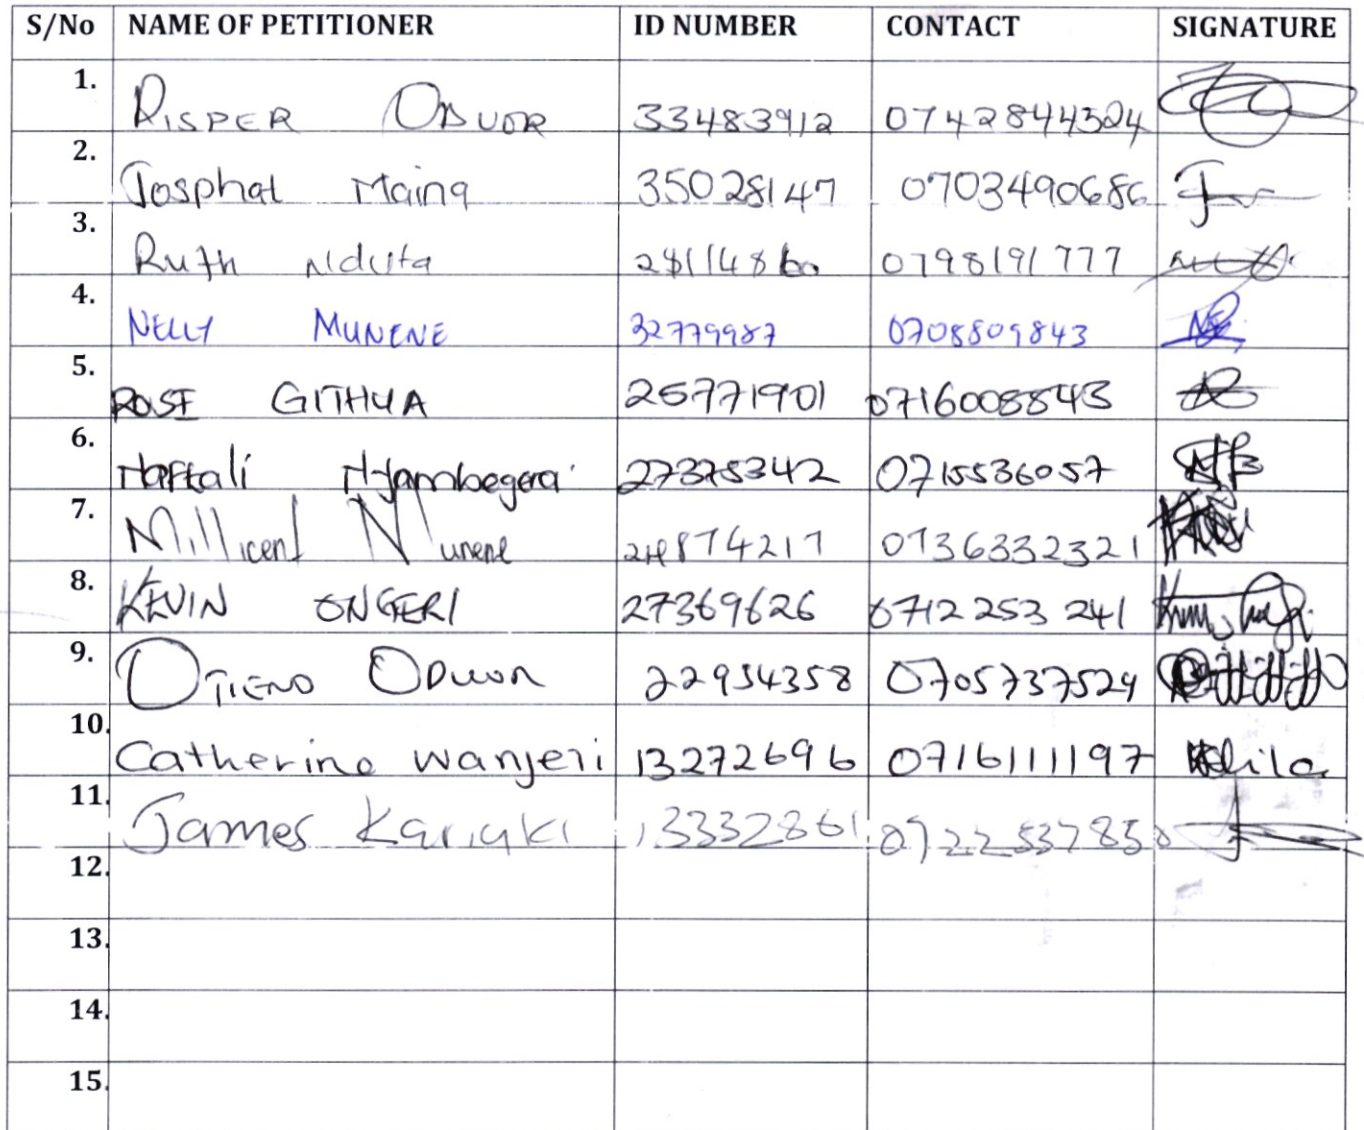 S/No NAME OF PETITIONER ID NUMBER CONTACT SIGNATURE
1. DISPER OBUOR 33483912 0742844324
2. Josphat Maina 35028147 0703490686
3. Ruth Nduta 0798191777
4. NELLY MUNENE 32779987 0708809843
5. ROSE GITHUA 25771901 0716008843
6. Naftali Njambegera 27375342 0715536057
7. Millicent Munene 0736332321
8. KEVIN ONGERI 27369626 0712 253 241
9. OTIENO ODUOR 22954358 0705737524
10. Catherine Wanjeri 13272696 0716111197
11. James Kariuki 13332861 0722537850
12.
13.
14.
15.